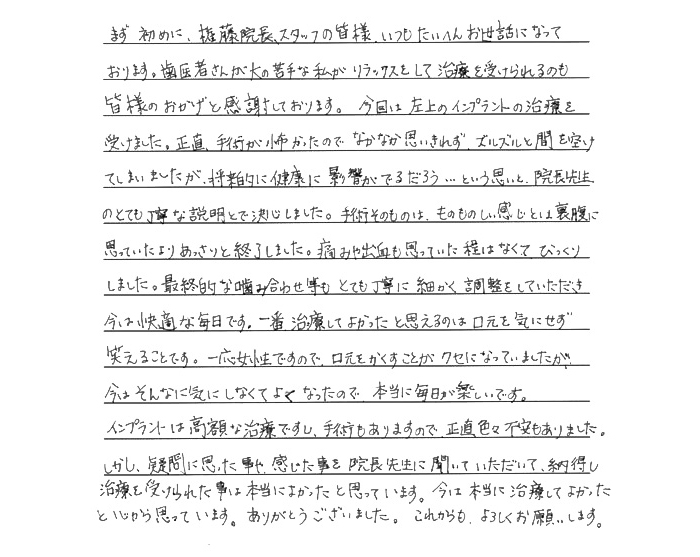 まず初めに、権藤院長、スタッフの皆様、いつもたいへんお世話になって
おります。歯医者さんが大の苦手な私がリラックスをして治療を受けられるのも
皆様のおかげと感謝しております。今回は左上のインプラントの治療を
受けました。正直、手術が怖かったのでなかなか思いきれず、ズルズルと間を空け
てしまいましたが、将来的に健康に影響がでるだろう…という思いと、院長先生
のとても丁寧な説明とで決心しました。手術そのものは、ものものしい感じとは裏腹に
思っていたよりあっさりと終了しました。痛みや出血も思っていた程はなくてびっくり
しました。最終的な噛み合わせ等もとても丁寧に細かく調整をしていただき
今は快適な毎日です。一番治療してよかったと思えるのは口元を気にせず
笑えることです。一応女性ですので、口元をかくすことがクセになっていましたが
今はそんなに気にしなくてよくなったので、本当に毎日が楽しいです。
インプラントは高額な治療ですし、手術もありますので、正直色々不安もありました。
しかし、疑問に思った事や、感じた事を院長先生に聞いていただいて、納得し
治療を受けられた事は本当によかったと思っています。今は本当に治療してよかった
と心から思っています。ありがとうございました。これからも、よろしくお願いします。